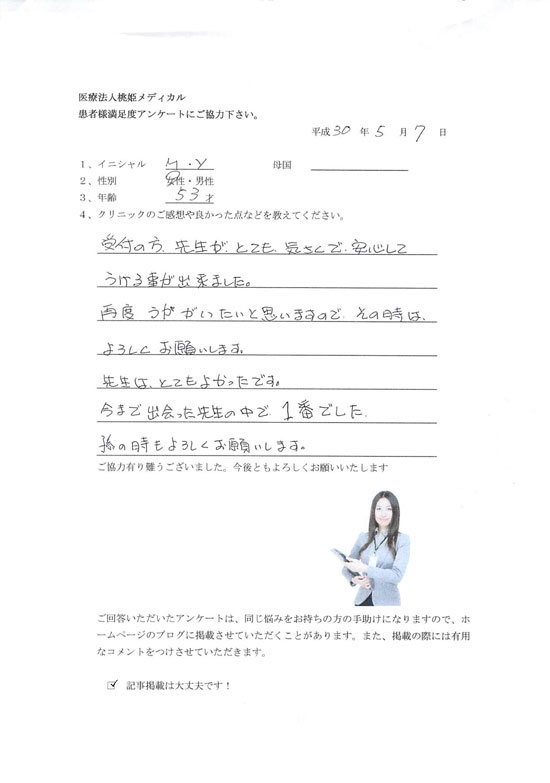 医療法人桃姫メディカル
患者様満足度アンケートにご協力下さい。
平成 30 年 5 月 7 日
1、イニシャル M・Y 母国
2、性別 女性・男性
3、年齢 53 才
4、クリニックのご感想や良かった点などを教えてください。
受付の方、先生が、とても、気さくで、安心して
うける事が出来ました。
再度 うかがいったいと思いますので、その時は、
よろしくお願いします。
先生は、とてもよかったです。
今まで出会った先生の中で、1番でした。
の時もよろしくお願いします。
ご協力有り難うございました。今後ともよろしくお願いいたします
ご回答いただいたアンケートは、同じ悩みをお持ちの方の手助けになりますので、ホ
ームページのブログに掲載させていただくことがあります。また、掲載の際には有用
なコメントをつけさせていただきます。
☑ 記事掲載は大丈夫です！